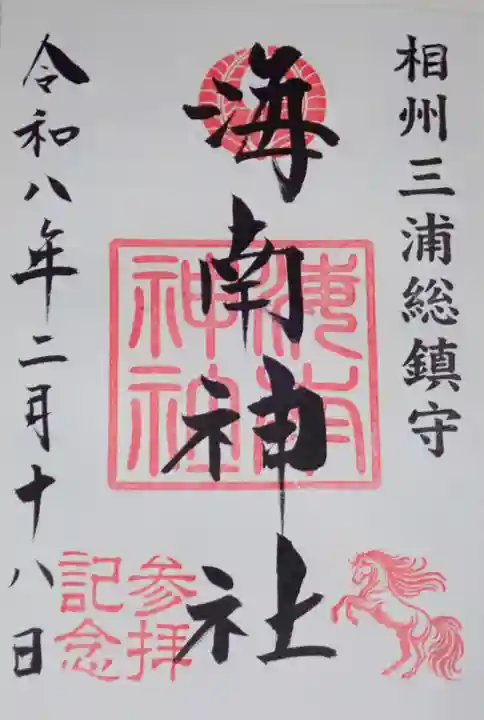 相州三浦総鎮守
海南神社
海南神社
参拝
記念
令和八年二月十八日